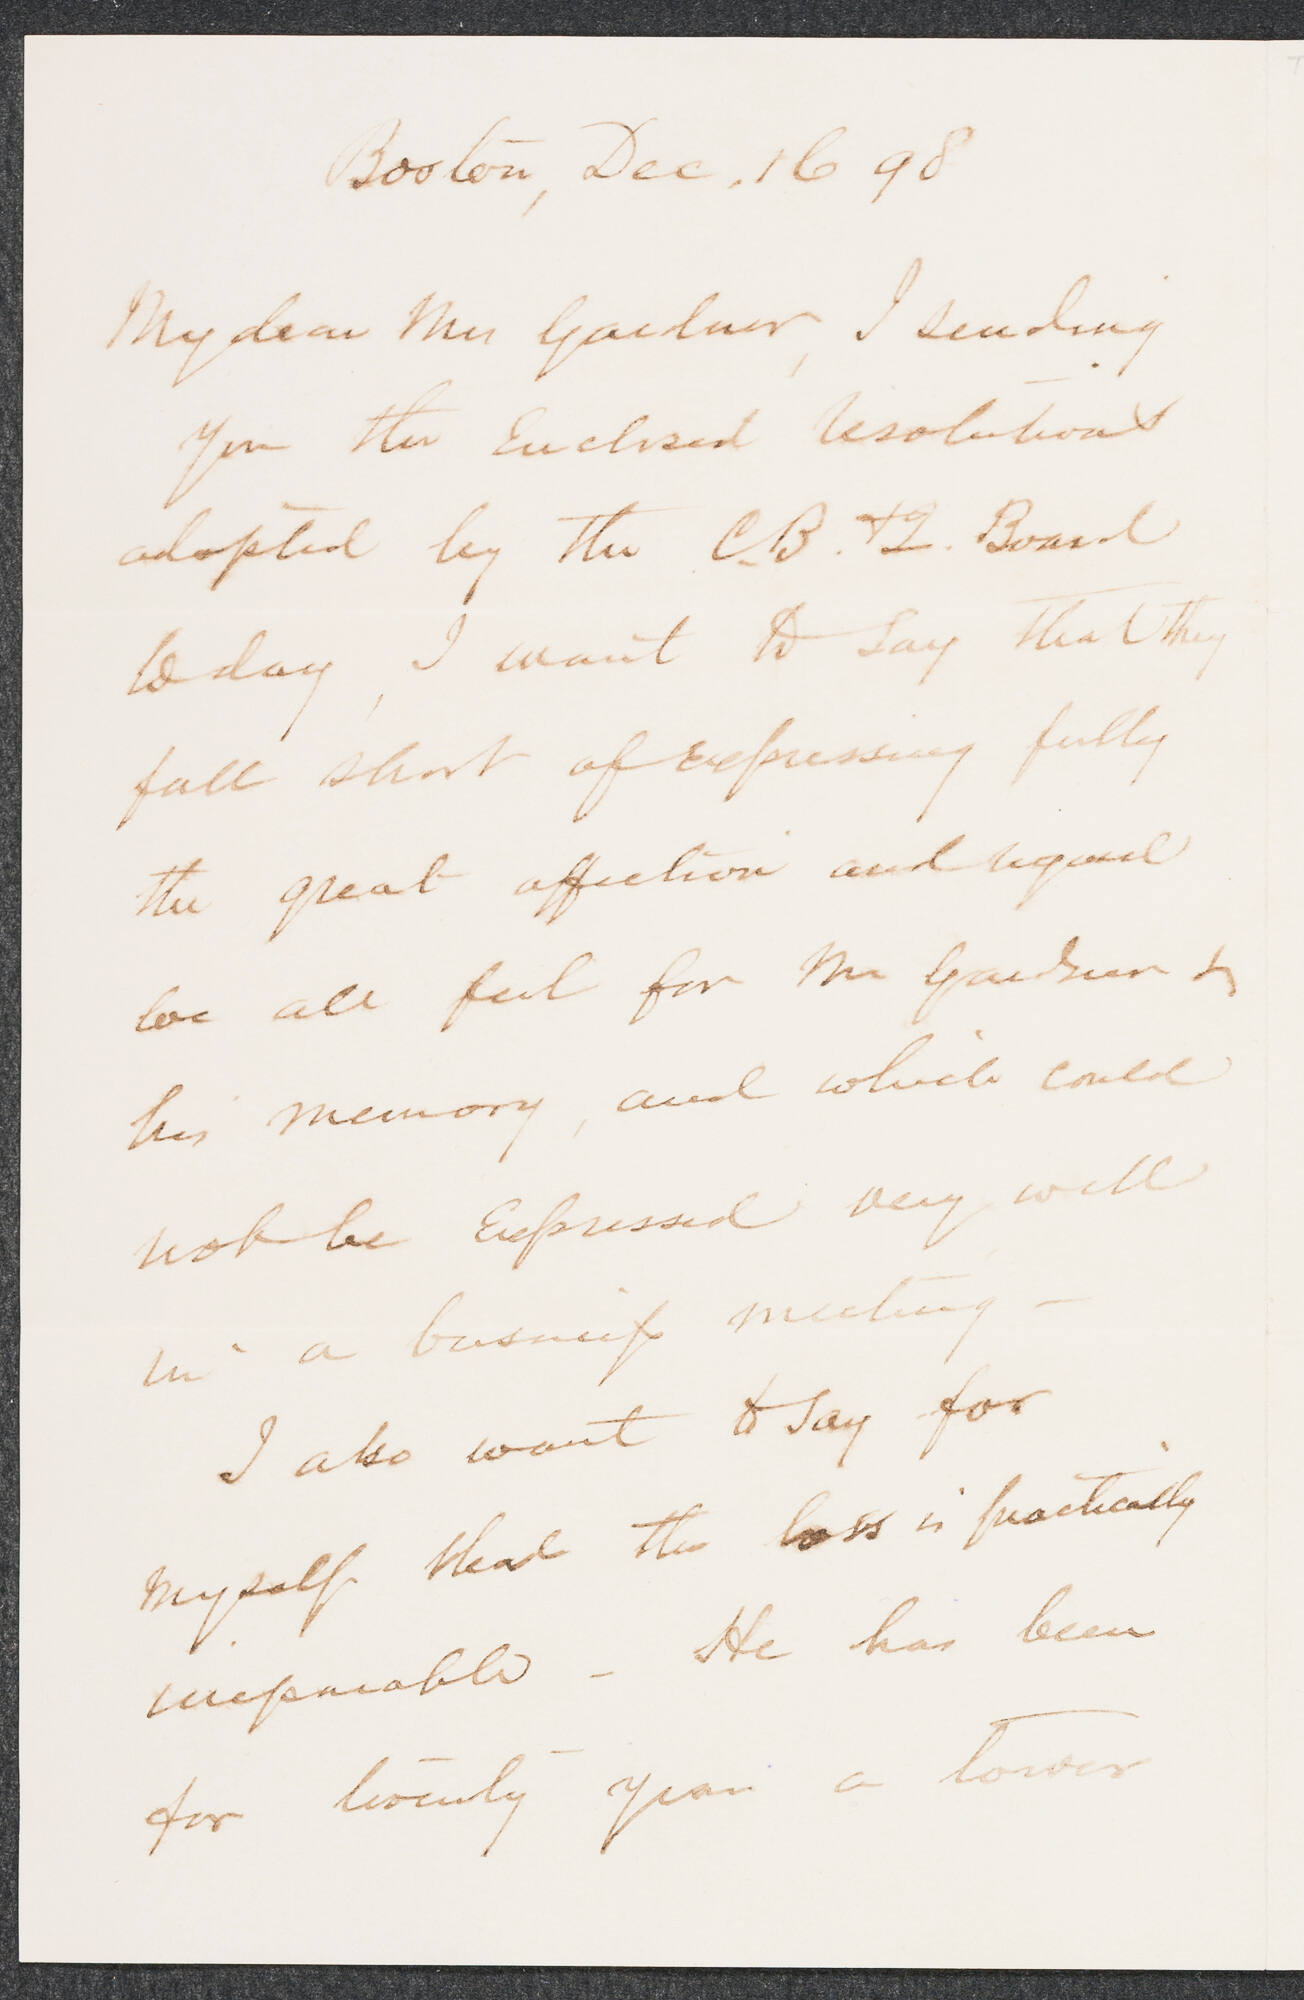 Boston, Dec. 16 98
My dear Mrs Gardner, I sending
you the enclosed resolutions
adopted by the C.B. & Q. Board
today, I want to say that they
fall short of expressing fully
the great affection and regard
we all feel for Mr Gardner &
his memory, and which could
not be expressed very well
in a business meeting -
I also want to say for
myself that the loss is practically
irreparable - He has been
for twenty years a tower